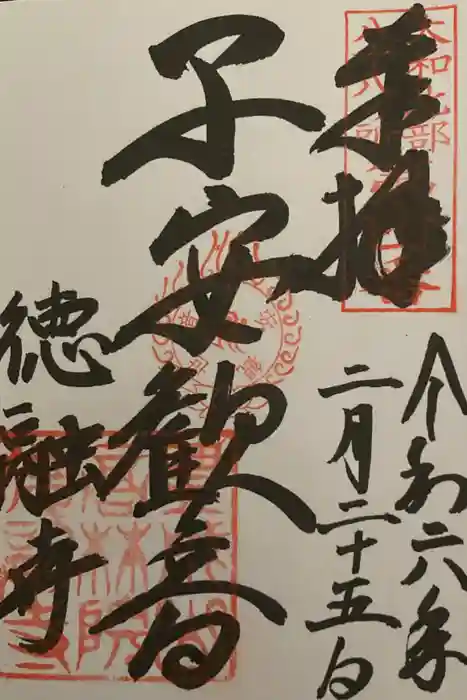 奉拝
大和北部
令和六年
二月二十五日
子安観音
徳融寺